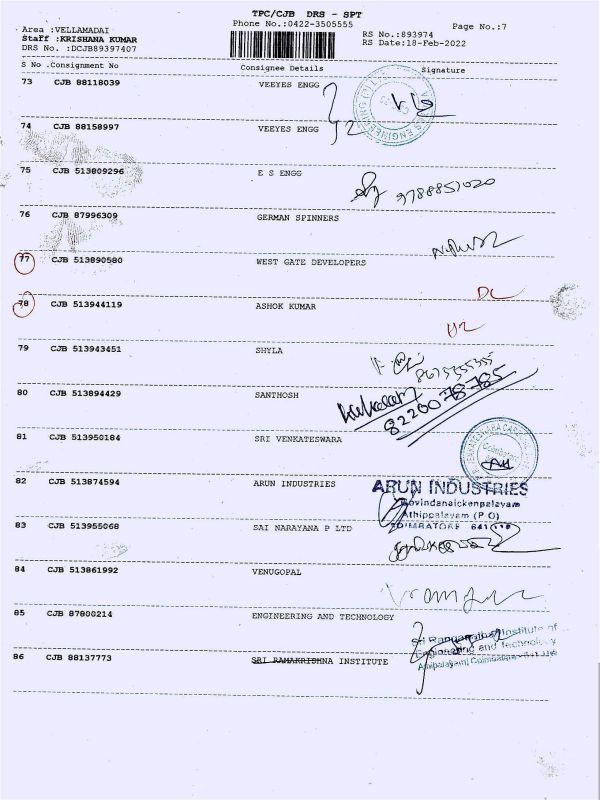 TPC/CJB DRS - SPT
Area :VELLAMADAI
Phone No.:0422-3505555
Page No.:7
Staff :KRISHANA KUMAR
RS No.:893974
DRS No. :DCJB89397407
RS Date:18-Feb-2022
S No .Consignment No Consignee Details Signature
73 CJB 88118039 VEEYES ENGG
74 CJB 88158997 VEEYES ENGG
75 CJB 513809296 E S ENGG
9788851020
76 CJB 87996309 GERMAN SPINNERS
77 CJB 513890580 WEST GATE DEVELOPERS
DL
78 CJB 513944119 ASHOK KUMAR
79 CJB 513943451 SHYLA
80 CJB 513894429 SANTHOSH
82200 78785
81 CJB 513950184 SRI VENKATESWARA
82 CJB 513874594 ARUN INDUSTRIES
ARUN INDUSTRIES
Govindanaickenpalayam
Athippalayam (P O)
COIMBATORE
83 CJB 513955068 SAI NARAYANA P LTD
84 CJB 513861992 VENUGOPAL
85 CJB 87800214 ENGINEERING AND TECHNOLOGY
Sri Ranganathar Institute of
Engineering and Technology
Athipalayam, Coimbatore
86 CJB 88137773 SRI RAMAKRISHNA INSTITUTE